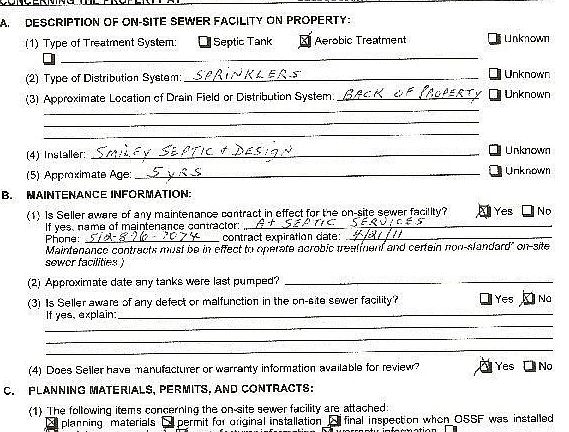 A. DESCRIPTION OF ON-SITE SEWER FACILITY ON PROPERTY:
(1) Type of Treatment System: Septic Tank Aerobic Treatment Unknown
(2) Type of Distribution System: SPRINKLERS Unknown
(3) Approximate Location of Drain Field or Distribution System: BACK OF PROPERTY Unknown
(4) Installer: SMILEY SEPTIC + DESIGN Unknown
(5) Approximate Age: 5 yRS Unknown
B. MAINTENANCE INFORMATION:
(1) Is Seller aware of any maintenance contract in effect for the on-site sewer facility? Yes No
If yes, name of maintenance contractor: A+ SEPTIC SERVICES
Phone: 512-876-7074 contract expiration date: 4/21/11
Maintenance contracts must be in effect to operate aerobic treatment and certain non-standard" on-site
sewer facilities )
(2) Approximate date any tanks were last pumped?
(3) Is Seller aware of any defect or malfunction in the on-site sewer facility? Yes No
If yes, explain:
(4) Does Seller have manufacturer or warranty information available for review? Yes No
C. PLANNING MATERIALS, PERMITS, AND CONTRACTS:
(1) The following items concerning the on-site sewer facility are attached:
planning materials permit for original installation final inspection when OSSF was installed